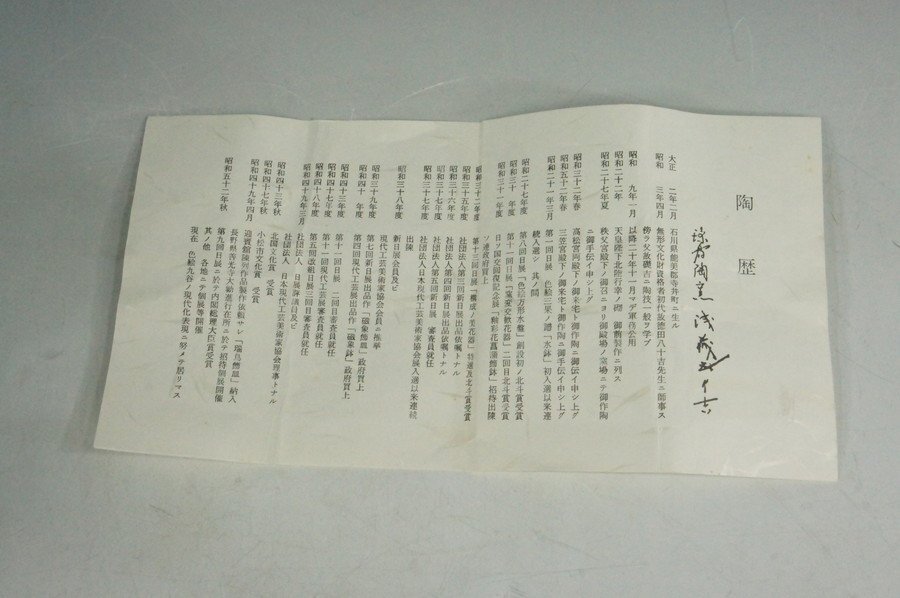 陶歴
陶窯 浅蔵五十吉
大正 二年二月 石川県能美郡寺井町ニ生ル
昭和 三年四月 無形文化財資格者初代故徳田八十吉先生ニ師事ス
傍ラ父故磯吉ニ陶技一般ヲ学ブ
昭和 九年一月 以降二十年十一月マデ軍務公用
昭和二十二年 天皇陛下北陸行幸ノ際 御前製作ニ列ス
昭和二十七年夏 秩父宮殿下ノ御召ニヨリ御殿場ノ窯場ニテ御作陶
ニ御手伝イ申シ上グ
昭和三十二年春 高松宮両殿下ノ御来宅ト御作陶ニ御伝イ申シ上グ
昭和五十二年春 三笠宮殿下ノ御来宅ト御作陶ニ御手伝イ申シ上グ
昭和二十一年三月 第一回日展 色絵三果ノ踊「水鉢」初入選以来連
続入選シ 其ノ間
昭和二十七年度 第八回日展「色絵方形水盤」創設初ノ北斗賞受賞
昭和三十 年度 第十一回日展「窯変交歓花器」二回目北斗賞受賞
昭和三十一年度 日ソ国交回復記念展「釉彩花菖蒲飾鉢」招待出陳
ソ連政府買上
昭和三十二年度 第十三回日展「構成ノ美花器」特選及北斗賞受賞
昭和三十五年度 社団法人第三回新日展出品依嘱トナル
昭和三十六年度 社団法人第四回新日展出品依嘱トナル
昭和三十七年度 社団法人第五回新日展 審査員就任
昭和三十七年度 社団法人日本現代工芸美術家協会展入選以来連続
出陳
昭和三十八年度 新日展会員及ビ
現代工芸美術家協会会員ニ推挙
昭和三十九年度 第七回新日展出品作「磁象飾皿」政府買上
昭和四十 年度 第四回現代工芸展出品作「磁象鉢」政府買上
昭和四十三年度 第十一回日展 二回目審査員就任
昭和四十七年度 第十一回現代工芸展審査員就任
昭和四十八年度 第五回改組日展三回目審査員就任
昭和四十九年三月 社団法人 日展評議員及ビ
社団法人 日本現代工芸美術家協会理事トナル
昭和四十三年秋 北国文化賞 受賞
昭和四十七年秋 小松市文化賞 受賞
昭和四十九年四月 迎賓館陳列作品製作依頼サレ「瑞鳥飾皿」納入
長野県善光寺大勧進行在所ニ於テ招待個展開催
昭和五十二年秋 第九回日展ニ於テ内閣総理大臣賞受賞
其ノ他 各地ニテ個展等開催
現在 色絵九谷ノ現代化表現ニ努メテ居リマス